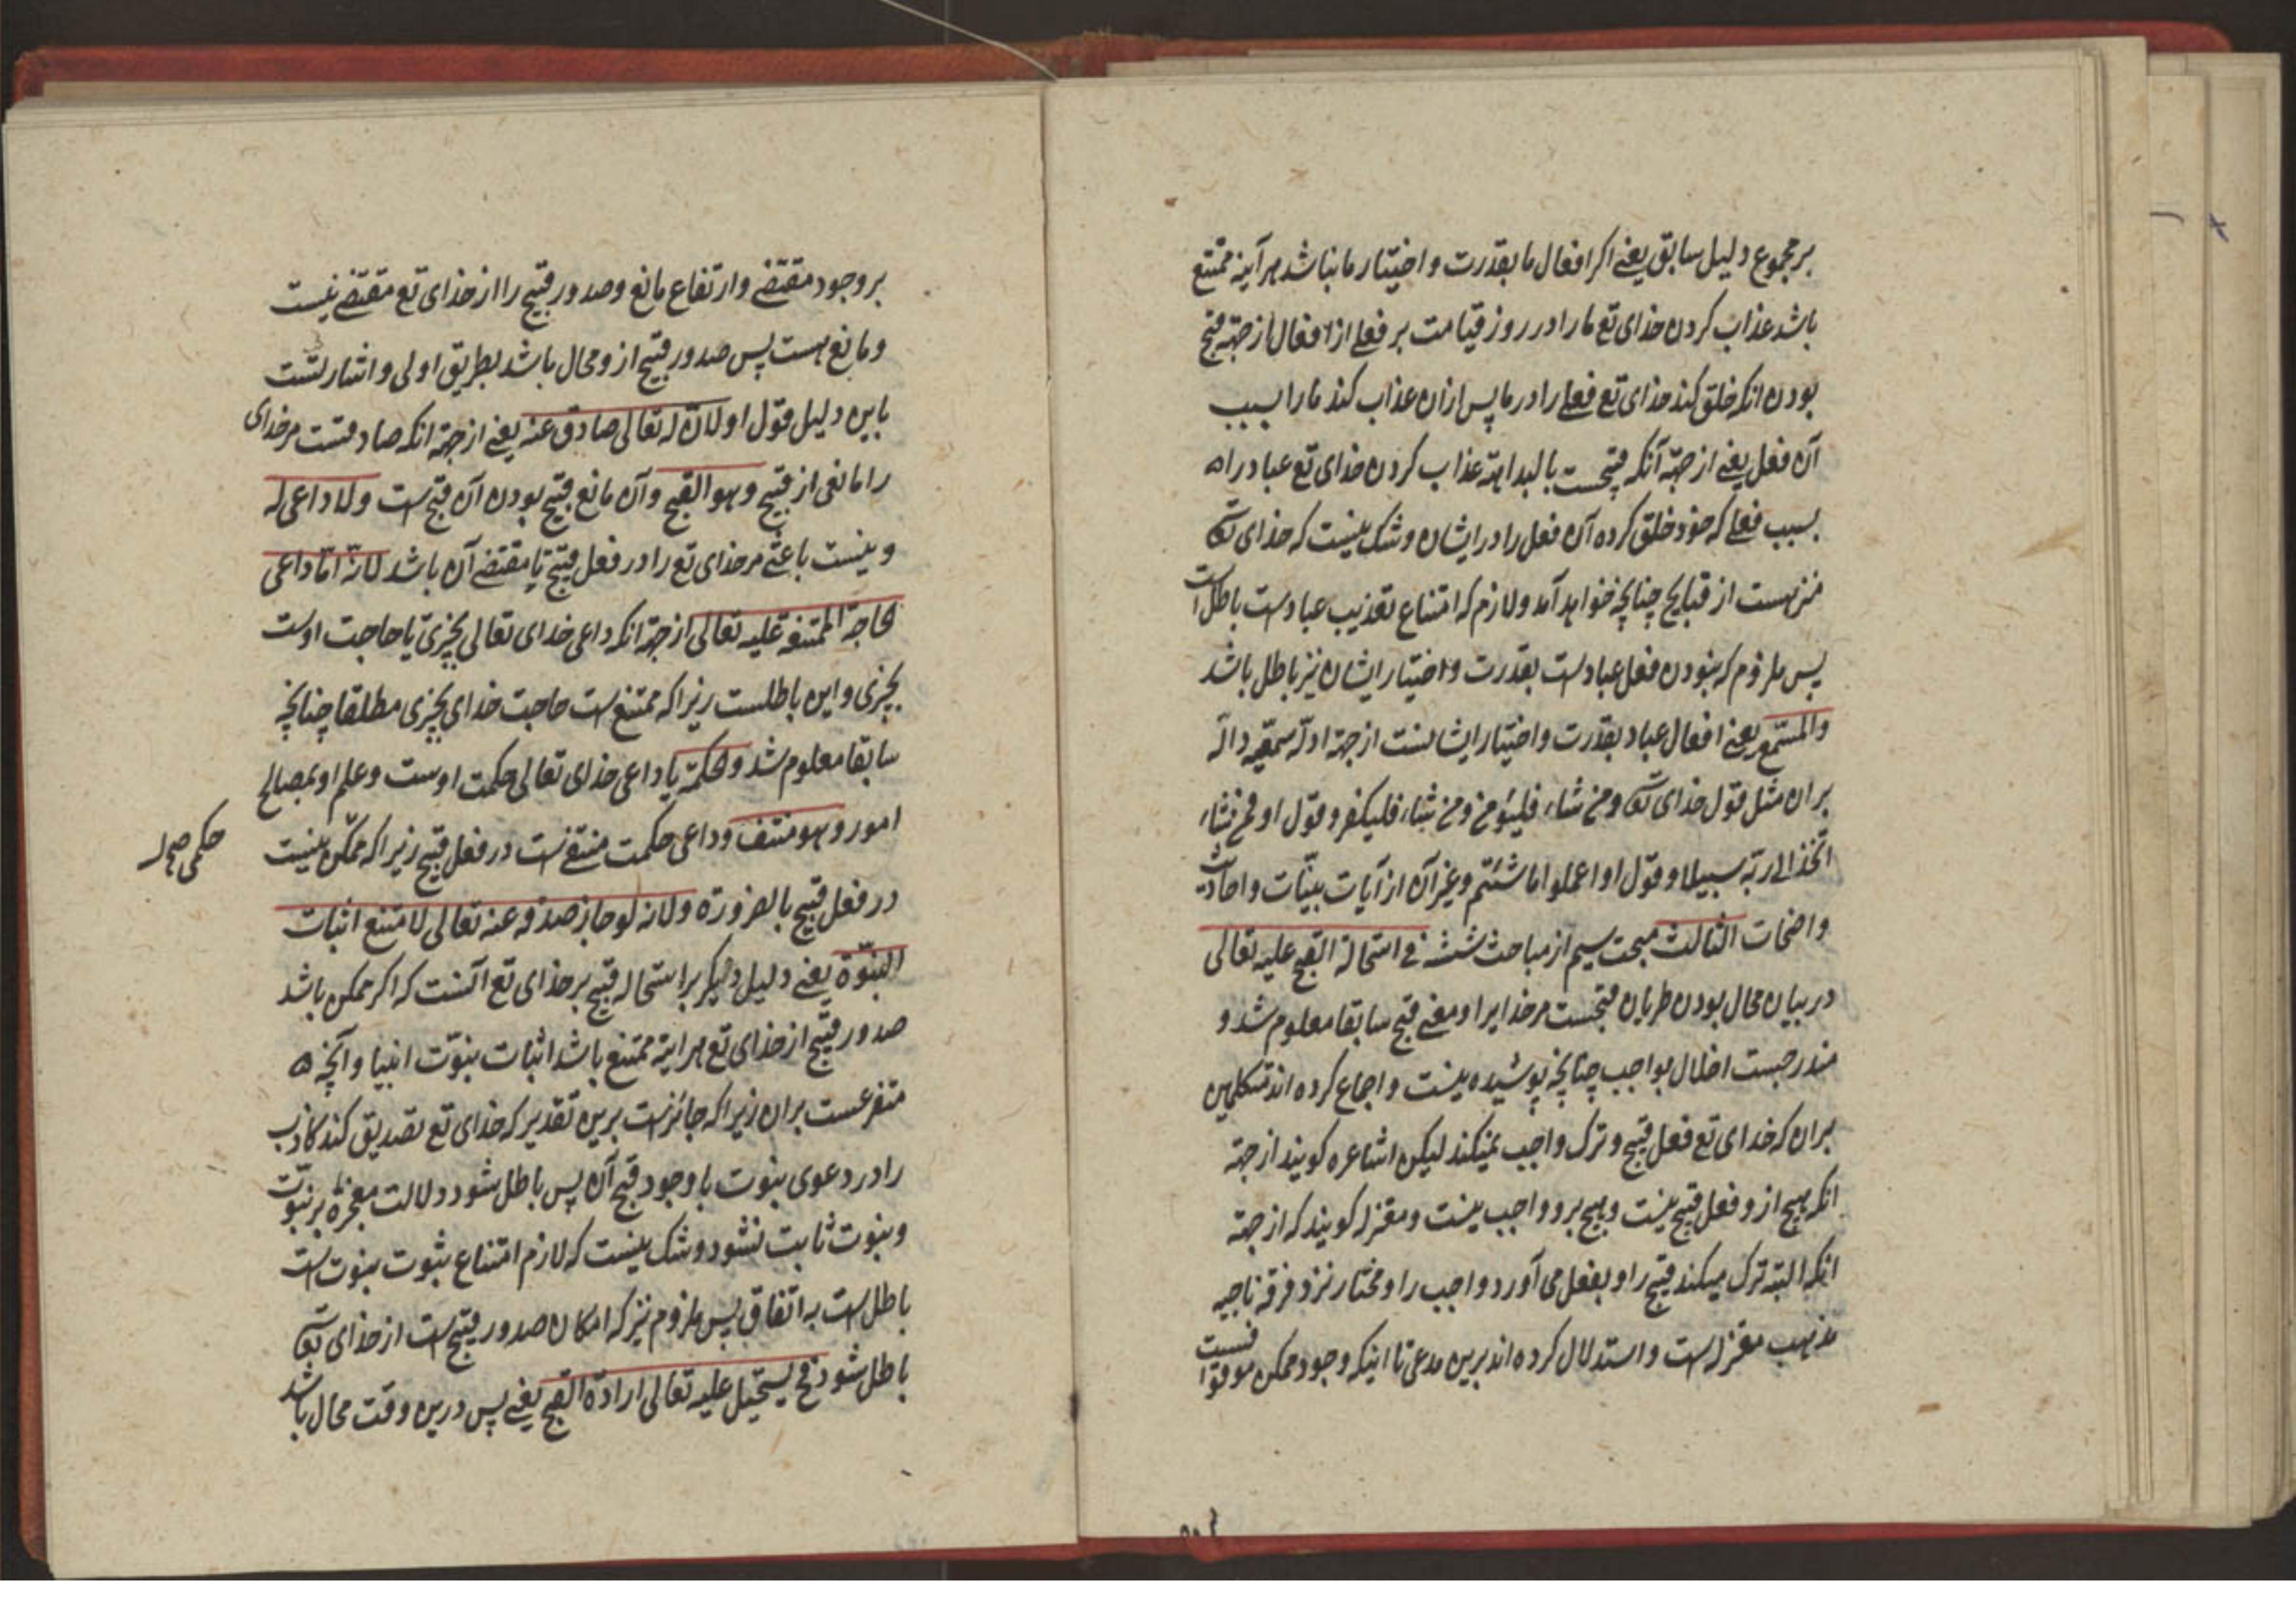 بر مجموع دلیل سابق یعنے اکر افعال ما بقدرت و اختیار ما نباشد هرآینه ممتنع
باشد عذاب کردن خدای تع ما را در روز قیامت بر فعلے از افعال از جهة قبح
بودن انکه خلق کند خدای تع فعلے را در ما پس ازان عذاب کند ما را بسبب
آن فعل یعنے از جهة آنکه قبیحست بالبداهة عذاب کردن خدای تع عباد را
بسبب فعلے که خود خلق کرده آن فعل را در ایشان و شک نیست که خدای تعه
منزهست از قبایح چنانچه خواهد آمد و لازم که امتناع تعذیب عبادست باطل است
پس ملزوم که نبودن فعل عبادست بقدرت و اختیار ایشان نیز باطل باشد
وللسّمع یعنے افعال عباد بقدرت و اختیار ایشانست از جهة ادلّه سمعیّه دالّه
بران مثل قول خدای تعه و من شاء فلیؤمن و من شاء فلیکفر و قول او فمن شاء
اتّخذ الی ربّه سبیلا و قول او اعملوا ما شئتم و غیر آن از آیات بیّنات و احادیث
واضحات الثالث مبحث سیم از مباحث ششه فے استحالة القبح علیه تعالی
در بیان محال بودن طریان قبحست مر خدایرا و معنے قبح سابقا معلوم شد و
مندرجست اخلال بواجب چنانچه پوشیده نیست و اجماع کرده اند متکلمین
بران که خدای تع فعل قبیح و ترک واجب نمیکند لیکن اشاعره کویند از جهة
انکه هیچ ازو فعل قبیح نیست و هیچ برو واجب نیست و معتزله کویند که از جهة
انکه البته ترک میکند قبیح را و بفعل می آورد واجب را و مختار نزد فرقه ناجیه
مذهب معتزله است و استدلال کرده اند برین مدعی تا اینکه وجود ممکن موقوفست
بر وجود مقتضے و ارتفاع مانع و صدور قبیح را از خدای تع مقتضے نیست
و مانع هست پس صدور قبیح ازو محال باشد بطریق اولی و اشارتست
باین دلیل قول او لانّ له تعالی صادق عنه یعنے از جهة انکه صادفست مر خدای
را مانعی از قبیح و هو القبح و آن مانع قبیح بودن آن قبیح است و لا داعی له
و نیست باعثے مر خدای تع را در فعل قبیح تا مقتضے آن باشد لانّه امّا داعی
لحاجة الممتنعة علیه تعالی از جهة انکه داعی خدای تعالی بچیزی یا حاجت اوست
بچیزی و این باطلست زیرا که ممتنع است حاجت خدای بچیزی مطلقا چنانچه
سابقا معلوم شد و الحکمة یا داعی خدای تعالی حکمت اوست و علم او بمصالح
امور و هو منتف و داعی حکمت منتفے است در فعل قبیح زیرا که ممکن نیست
حکمی
در فعل قبیح بالضرورة و لانه لو جاز صدوره عنه تعالی لامتنع اثبات
النبوّة یعنے دلیل دیکر بر استحاله قبیح بر خدای تع آنست که اکر ممکن باشد
صدور قبیح از خدای تع هراینه ممتنع باشد اثبات نبوّت انبیا و آنچه
متفرعست بران زیرا که جائز است برین تقدیر که خدای تع تصدیق کند کاذب
را در دعوی نبوت با وجود قبح آن پس باطل شود دلالت معجزه بر نبوّت
و نبوت ثابت نشود و شک نیست که لازم امتناع ثبوت نبوت است
باطل است به اتفاق پس ملزوم نیز که امکان صدور قبیح است از خدای تعه
باطل شود فح یستحیل علیه تعالی ارادة القبح یعنے پس درین وقت محال باشد